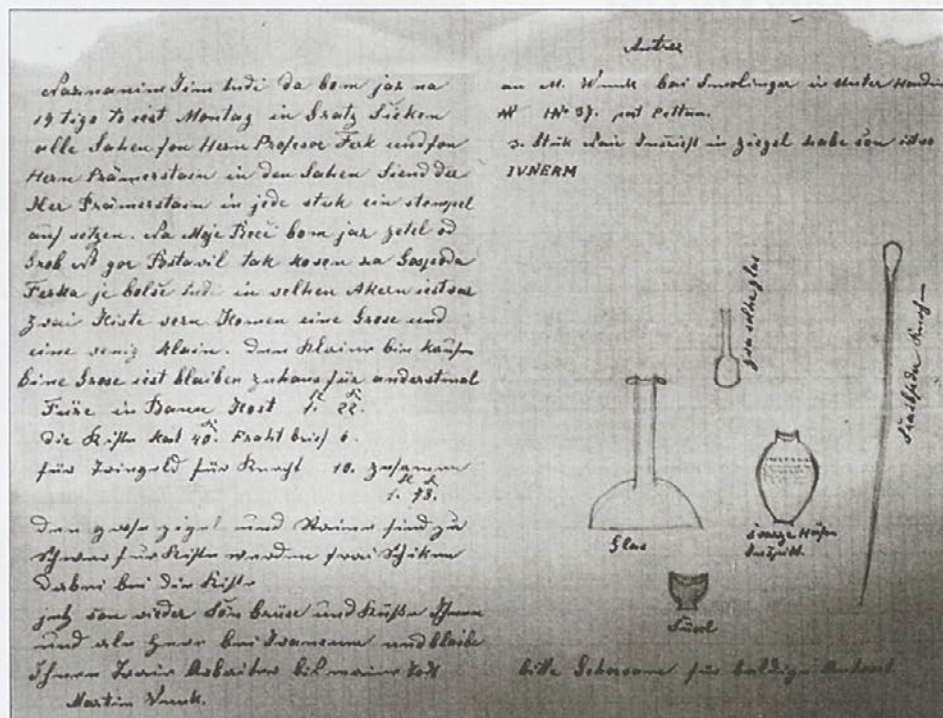 Naznanim Jim tudi da bom jaz na
19 tiga to ist Montag in Gratz Siken
alle Sahen fon Herrn Profesor Ferk und fon
Herrn Prämerstain in den Sahen Siend der
Her Prämerstain in jede stuk ein stempel
auf setzen. Na Moje Reči bom jaz zetel od
Grob No gor Postavil tak kosem za Gospoda
Ferka je bolše tudi in welhen Akern ist war
Zwai Kiste wern Komen eine Grose und
eine wenig klain. Den Klainer bin kaufen
Eine Grose ist blaiben zuhaus für anderstmal
Fure in Banne Kost 1. 22.
die Kiste kost 40. Fraht brief 6.
für Tringeld für Knecht 10. zusamen
1. 78.
den grose zigel und Stainer sind zu
Schwer fur Kiste werden frai Schiken
Dabei bei der Kiste
jetz son wieder Sön Grüse und Küße Ihnen
und ale Herr bei und blaibe
Ihnen Traier Arbaiter bil mainer Tot
Martin Vnuk.
Antres
an M. Wnuk bai Smolinger in Unter Haudin
No 37. post Pettau.
3. Stuk Nair Insrift in zigel habe son ist so
IVNERM
glas
Glas
Swarze Häfen
Insrift.
Süsel
bitte Gehorsame für baldige Antwort